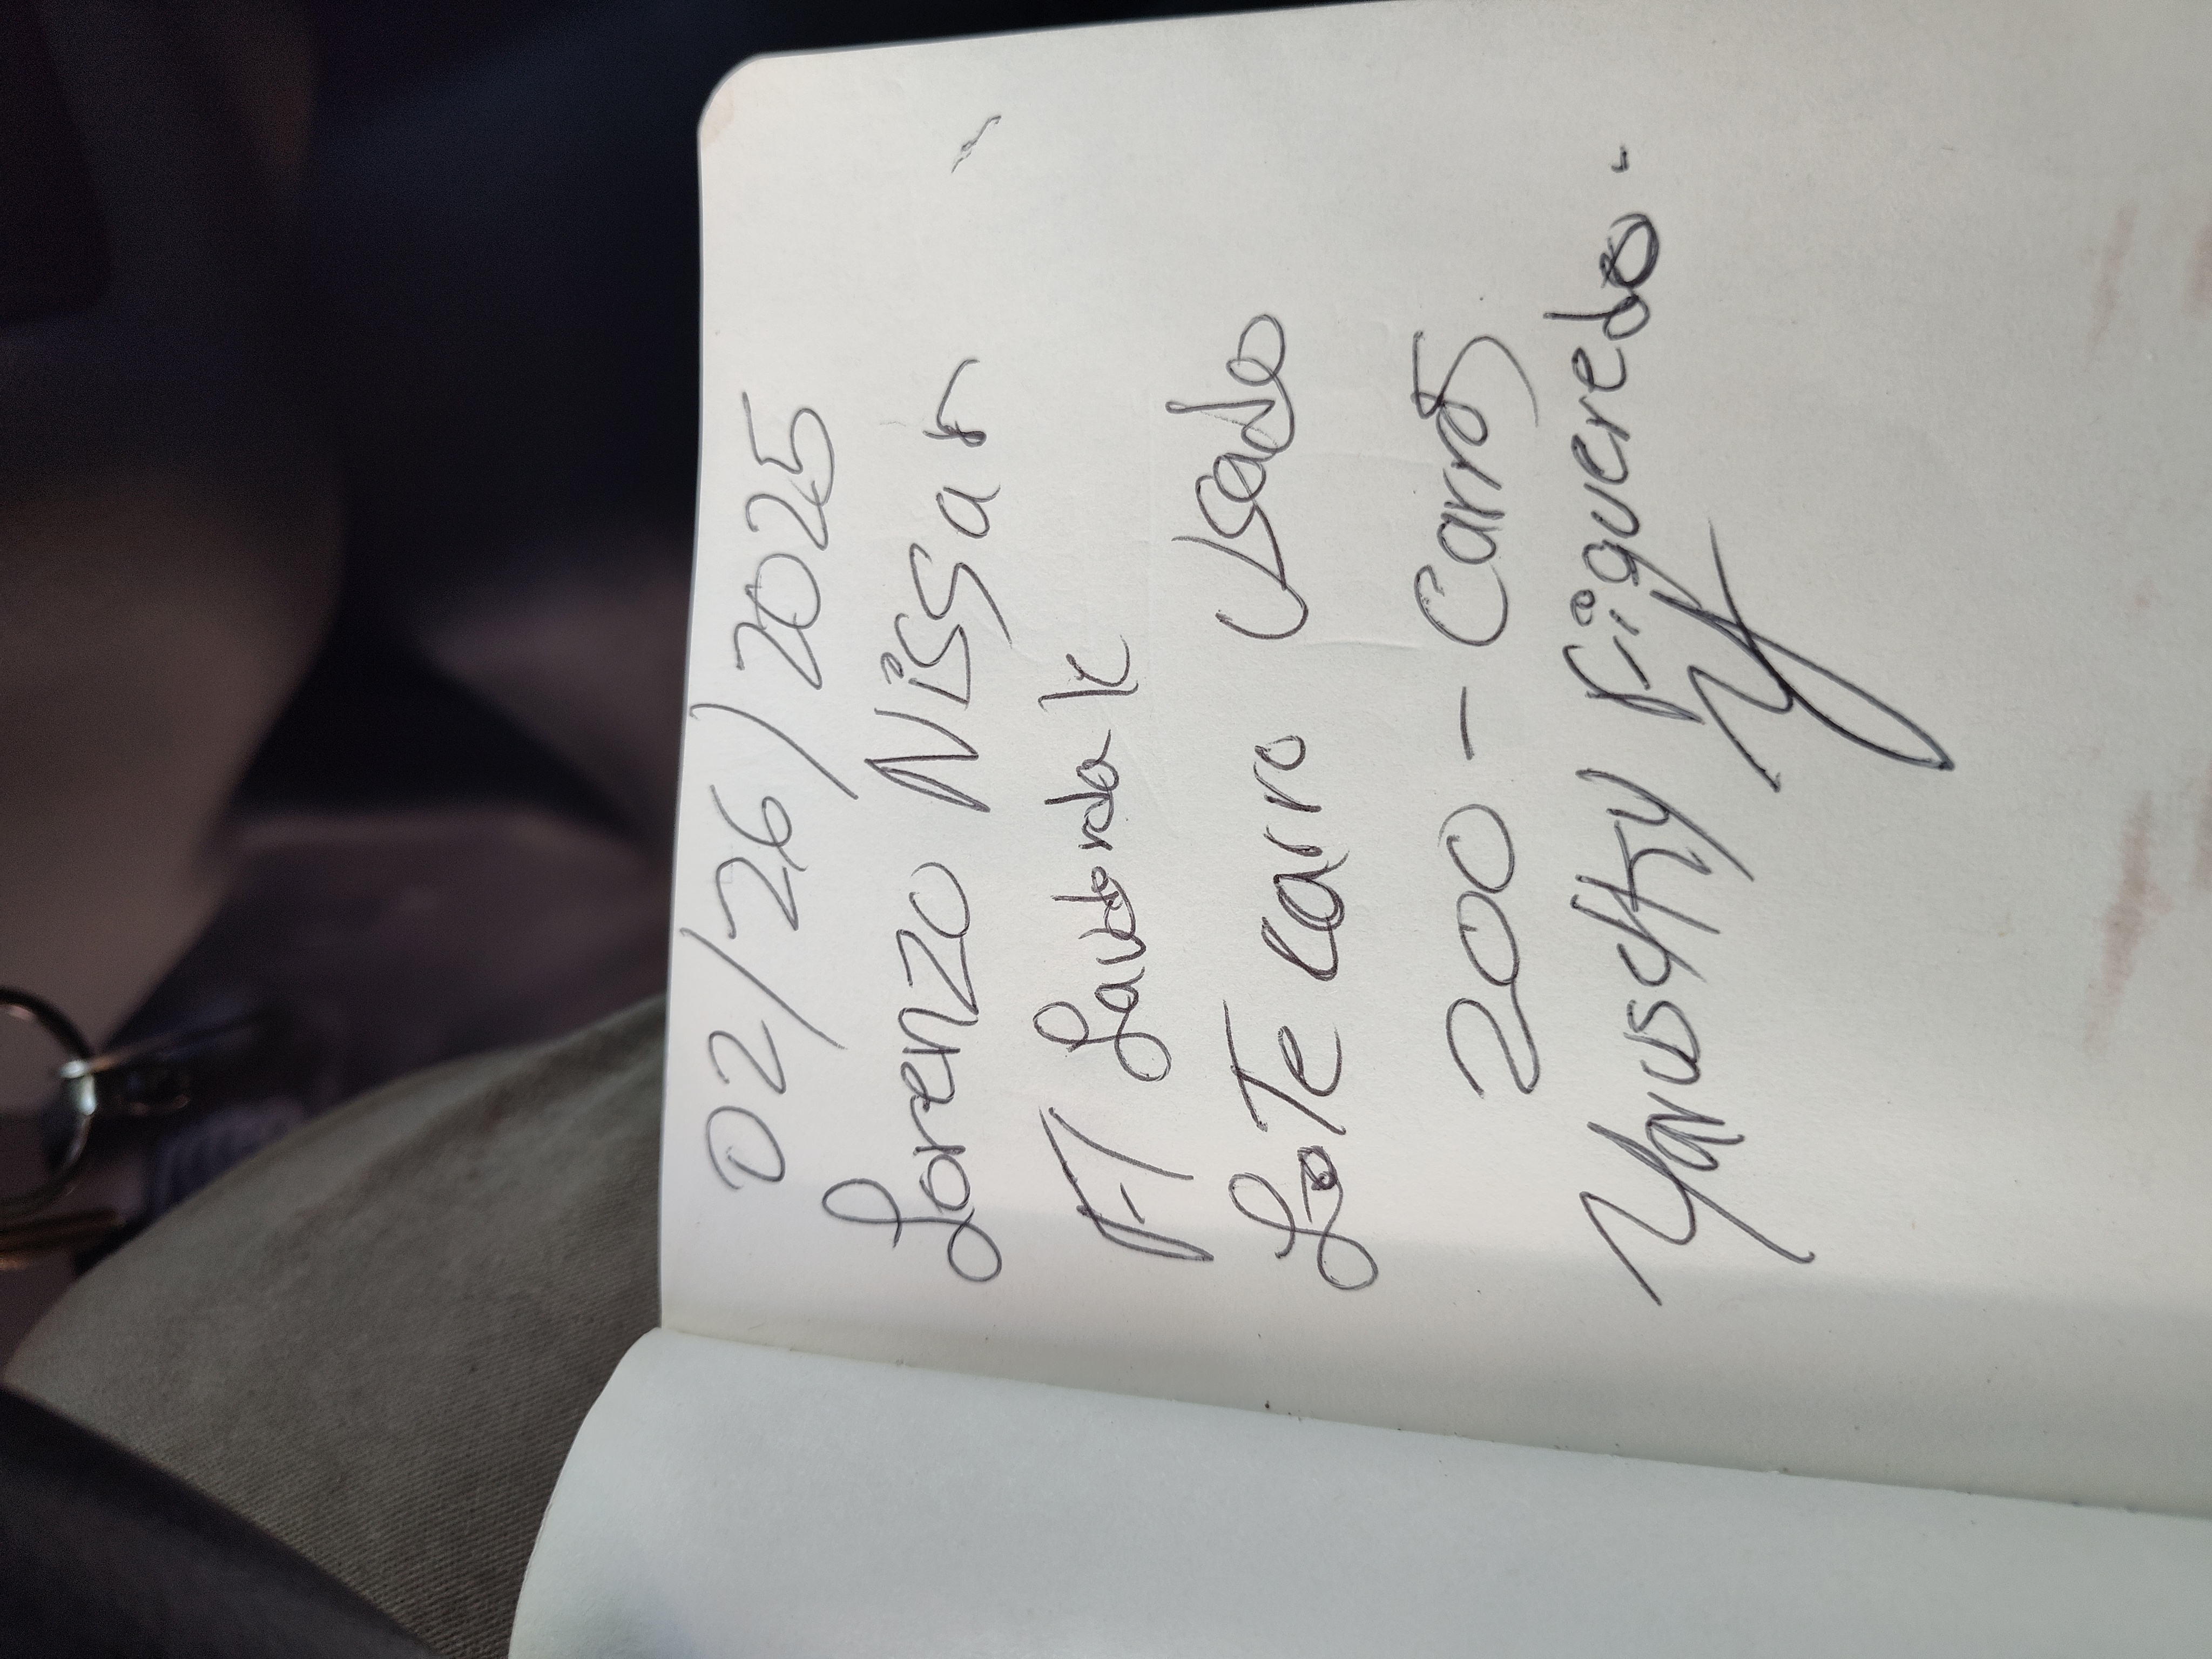 02/26/2025
Lorenzo Nissan
FT Lauderdale
LoTe Carro Usado
200 - Carros
Figueredo.